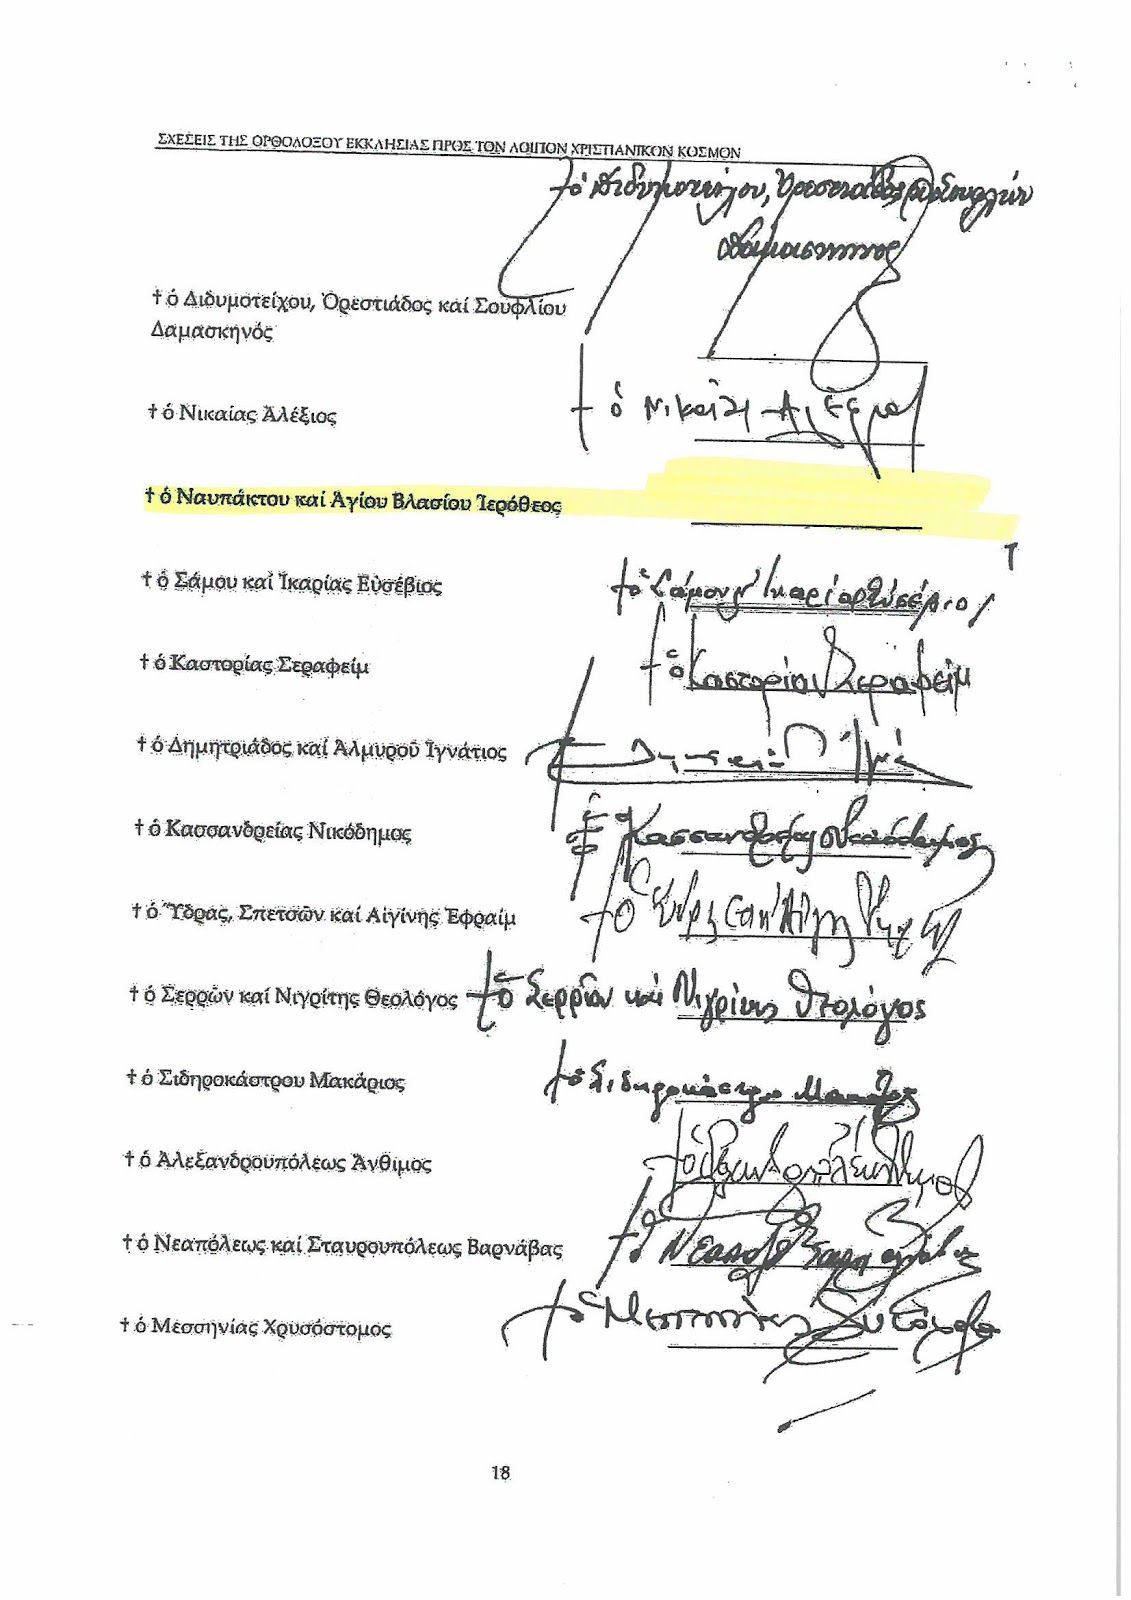 ΣΧΕΣΕΙΣ ΤΗΣ ΟΡΘΟΔΟΞΟΥ ΕΚΚΛΗΣΙΑΣ ΠΡΟΣ ΤΟΝ ΛΟΙΠΟΝ ΧΡΙΣΤΙΑΝΙΚΟΝ ΚΟΣΜΟΝ
† ὁ Διδυμοτείχου, Ὀρεστιάδος
Δαμασκηνός
† ὁ Διδυμοτείχου, Ὀρεστιάδος καί Σουφλίου
Δαμασκηνός
† ὁ Νικαίας Ἀλέξιος † ὁ Νικαίας
† ὁ Ναυπάκτου καί Ἁγίου Βλασίου Ἱερόθεος
† ὁ Σάμου καί Ἰκαρίας Εὐσέβιος † ὁ Σάμου Ἰκαρίας Εὐσέβιος
† ὁ Καστορίας Σεραφείμ † ὁ Καστορίας Σεραφείμ
† ὁ Δημητριάδος καί Ἁλμυροῦ Ἰγνάτιος
† ὁ Κασσανδρείας Νικόδημος † ὁ Κασσανδρείας Νικόδημος
† ὁ Ὕδρας, Σπετσῶν καί Αἰγίνης Ἐφραίμ † ὁ
† ὁ Σερρῶν καί Νιγρίτης Θεολόγος † ὁ Σερρῶν καί Νιγρίτης Θεολόγος
† ὁ Σιδηροκάστρου Μακάριος † ὁ Σιδηροκάστρου Μακάριος
† ὁ Ἀλεξανδρουπόλεως Ἄνθιμος † ὁ
† ὁ Νεαπόλεως καί Σταυρουπόλεως Βαρνάβας † ὁ
† ὁ Μεσσηνίας Χρυσόστομος † ὁ Μεσσηνίας
18